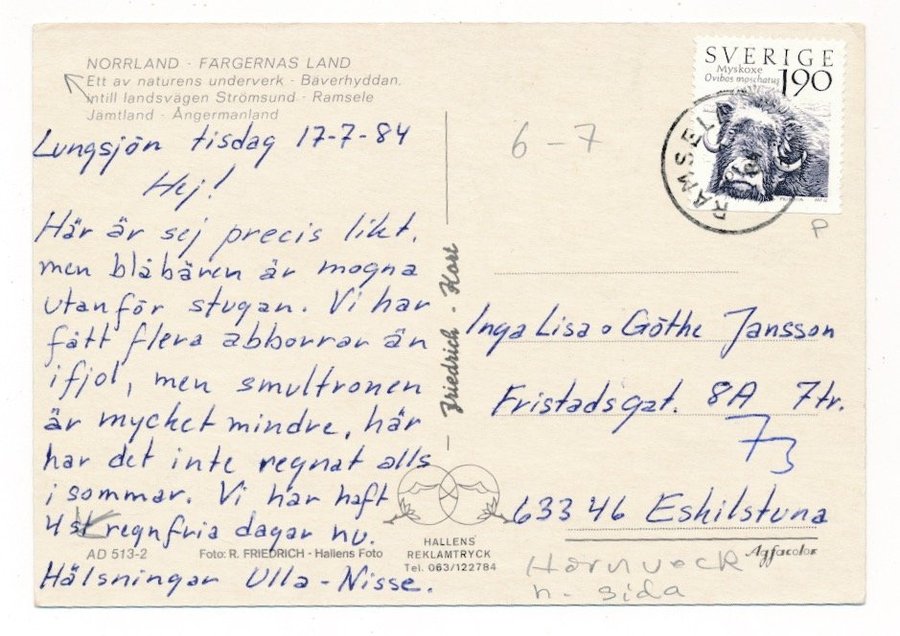 NORRLAND · FÄRGERNAS LAND
Ett av naturens underverk · Bäverhyddan,
intill landsvägen Strömsund · Ramsele
Jämtland · Ångermanland
Lungsjön tisdag 17-7-84
Hej!
Här är sej precis likt,
men blåbären är mogna
utanför stugan. Vi har
fått flera abborrar än
ifjol, men smultronen
är mycket mindre, här
har det inte regnat alls
i sommar. Vi har haft
4 st regnfria dagar nu.
AD 513-2 Foto: R. FRIEDRICH · Hallens Foto
Hälsningar Ulla-Nisse.
Friedrich - Kort
HALLENS
REKLAMTRYCK
Tel. 063/122784
6-7
SVERIGE
Myskoxe
Ovibos moschatus
1.90
RAMSELE
P
Inga Lisa o Göthe Jansson
Fristadsgat. 8A 7tr.
73
633 46 Eskilstuna
Agfacolor
Hörnveck
h. sida